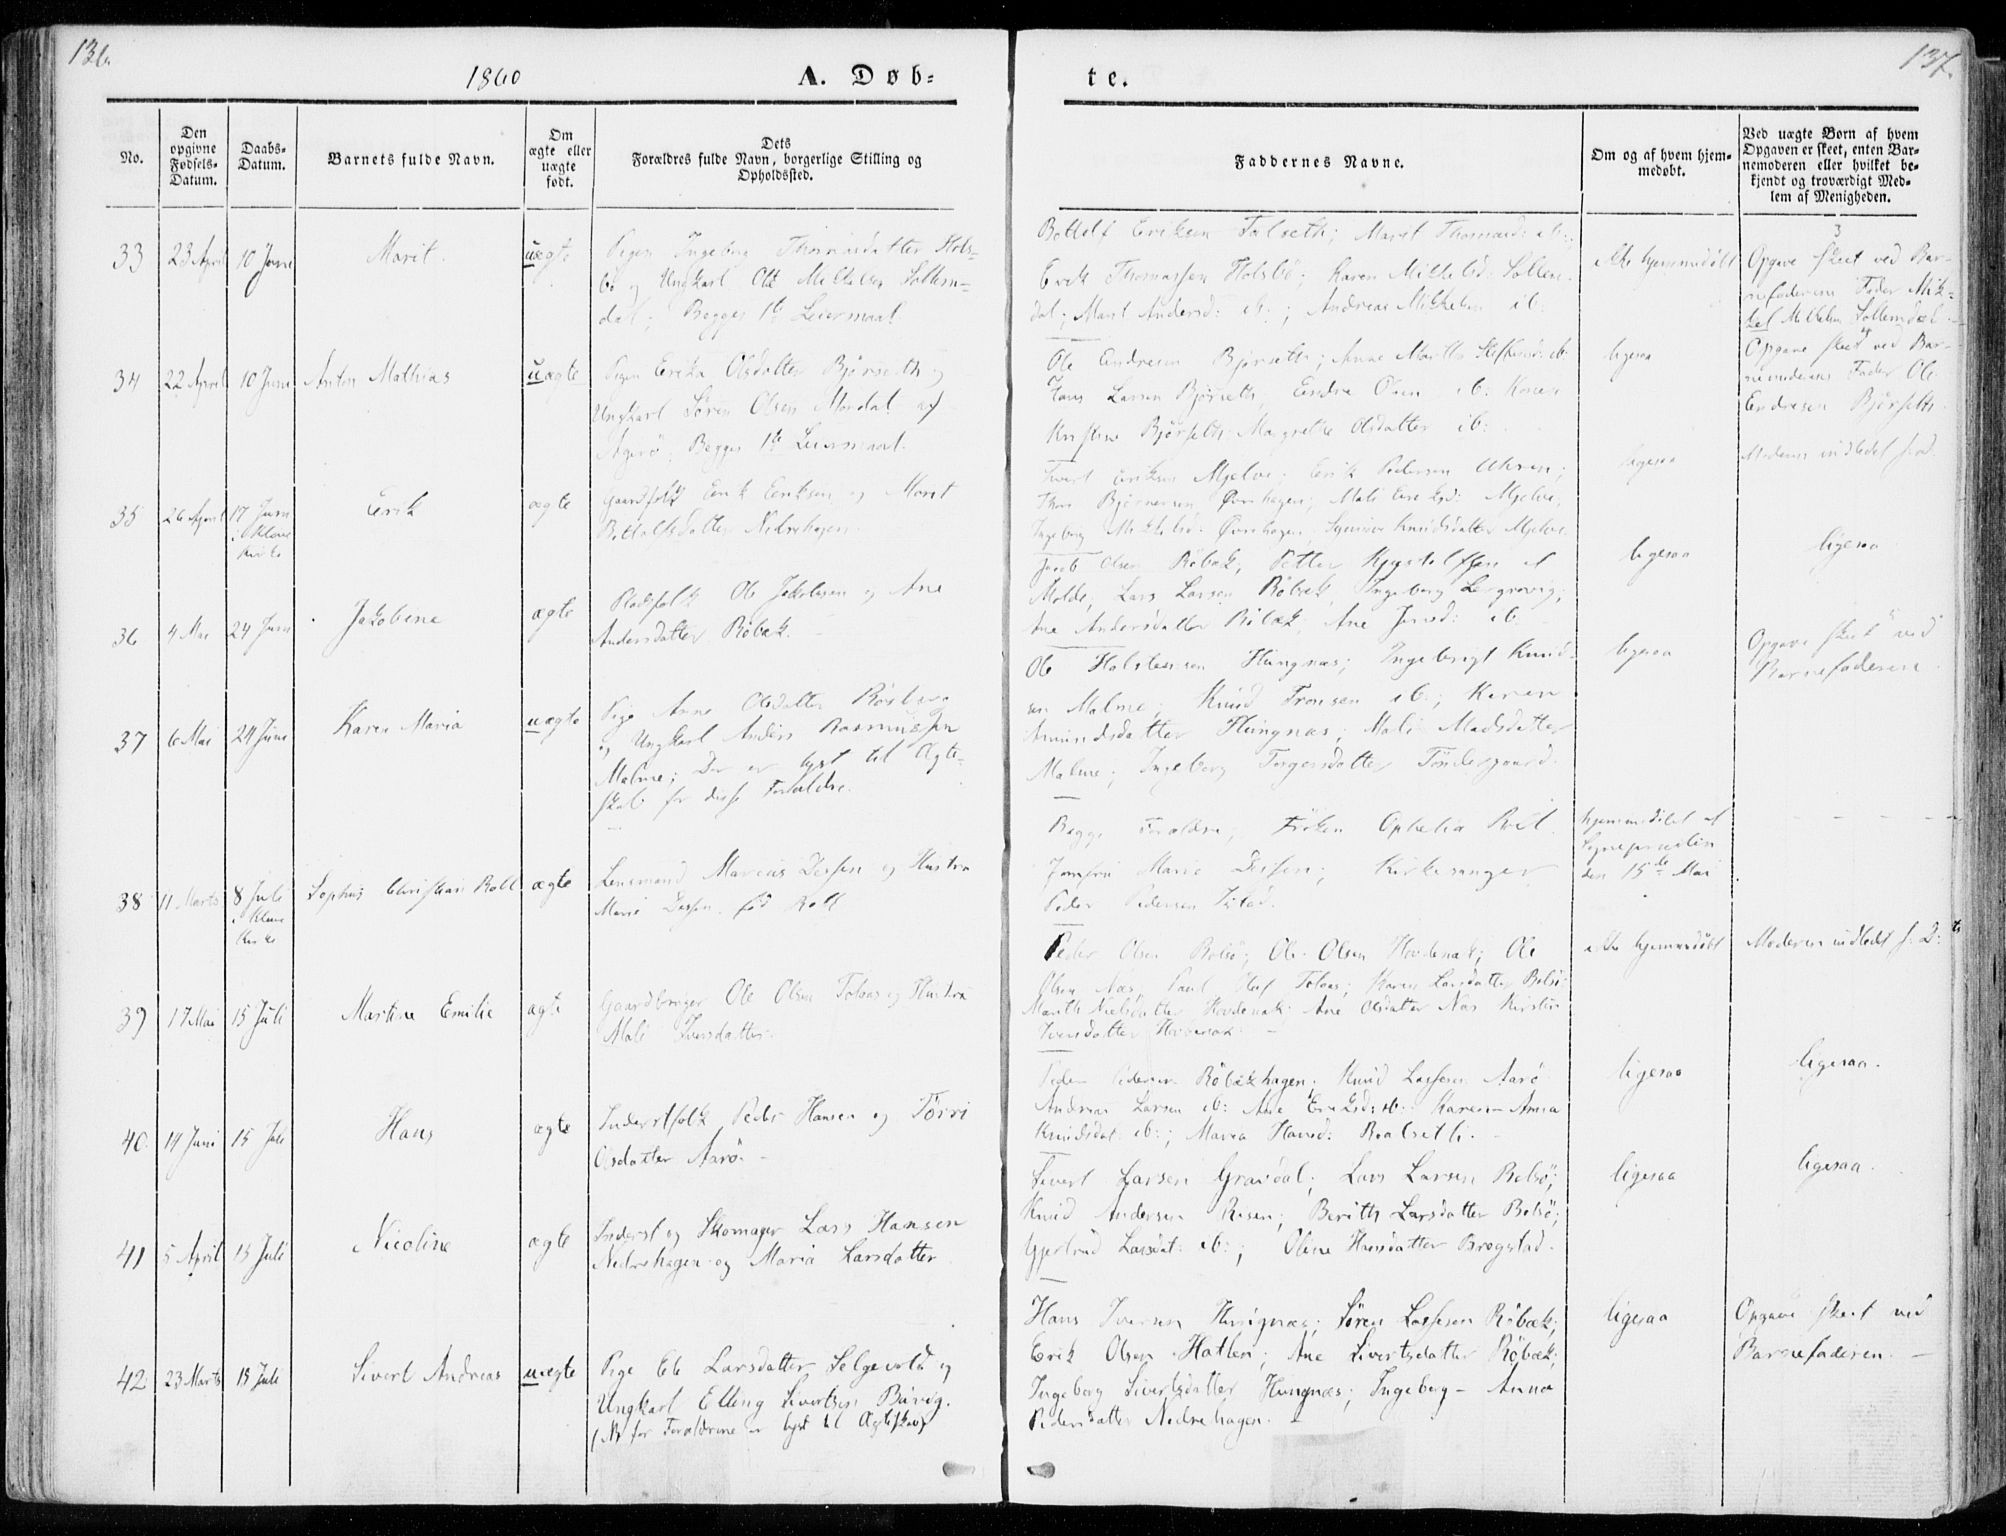 136.
137.
1860
A. Døb-
te.
No.
Den opgivne Fødsels-Datum.
Daabs-Datum.
Barnets fulde Navn.
Om ægte eller uægte født.
Dets Forældres fulde Navn, borgerlige Stilling og Opholdssted.
Faddernes Navne.
Om og af hvem hjem-medøbt.
Ved uægte Børn af hvem Opgaven er skeet, enten Bar-nemoderen eller hvilket be-kjendt og troværdigt Med-lem af Menigheden.
33 23 April 10 Juni Marit uægte
Pigen Ingeborg Thomasdatter Hols-
bö og Ungkarl Ole Mikkelsen Sollem-
dal; Begges 1ste Leiermaal
Bottolf Eriksen Falseth; Marit Thomasd: ib:;
Erik Thomassen Holsbö; Karen Mikkelsd: Sollem-
dal; Marit Andersd: ib:; Andreas Mikkelsen ib:
ikke hjemmedöbt
Opgave skeet ved Bar-
nefaderens Fader Mik-
kel Mikkelsen Sollemdal
34 22 April 10 Juni Anton Mathias uægte
Pigen Erika Olsdatter Björseth og
Ungkarl Sören Olsen Mordal af
Agerö; Begges 1ste Leiermaal.
Ole Endresen Björseth; Anne Marthe ib:
Hans Larsen Björseth, Endre Olsen ib: Konen
Kristine Björseth; Margrethe Olsdatter ib:
ligesaa
Opgave skeet ved Bar-
nemoderens Fader Ole
Endresen Björseth
35 26 April 17 Juni i Kleve Kirke Erik ægte
Gaardfolk Erik Eriksen og Marit
Bottolfsdatter Nedrehagen
Sivert Eriksen Mjelve; Erik Pedersen
Björnersen Övrehagen; Mali Eriksd: Mjelve,
Ingeborg Mikkelsd: Övrehagen, Knudsdatter Mjelve
ligesaa
Moderen indledet s. D.
36 4 Mai 24 Juni Jakobine ægte
Pladsfolk Ole Jakobsen og Ane
Andersdatter Röbæk.
Jacob Olsen Röbæk, Petter af
Molde, Lars Larsen Röbæk, Ingeborg Bergsvig;
Ane Andersdatter Röbæk, Ane ib:
ligesaa
ligesaa
37 6 Mai 24 Juni Karen Maria uægte
Pige Anne Olsdatter Rösberg
og Ungkarl Anders Rasmussen
Malme; Der er lyst til Ægte-
skab for disse Forældre.
Ole Halstensen Hungnæs; Ingebrigt Knud-
sen Malme; Knud Tronsen ib:; Karen
Amundsdatter Hungnæs; Mali Madsdatter
Malme; Ingeborg Torgersdatter Töndergaard.
ligesaa
Opgave skeet ved
Barnefaderen
38 11 Marts 8 Juli i Kleve Kirke Sophus Christian Roll ægte
Lensmand Marcus Dessen og Hustru
Marie Dessen fød Roll
Begge Forældre; Fröken Ophelia Roll
Jomfru Marie Dessen; Kirkesanger
Peder Pedersen
hjemmedöbt af
Sognepræsten
den 15de Mai
39 17 Mai 15 Juli Martine Emilie ægte
Gaardbruger Ole Olsen Tolaas og Hustru
Mali Iversdatter.
Peder Olsen Bolsö; Ole Olsen Hovdenak; Ole
Olsen Næs, Paul Tolaas, Karen Larsdatter Bolsö
Marith Nielsdatter Hovdenak; Ane Olsdatter Næs Kirstin
Iversdatter Hovdenak
ikke hjemmedöbt
Moderen indledet s. D:
40. 14 Juni 15 Juli Hans ægte
Inderstfolk Peder Hansen og Törri
Olsdatter Aarö
Peder Pedersen Röbækhagen; Knud Lassesen Aarö
Andreas Larsen ib: Ane Eriksd: ib: Karen Anna
Knudsdat: ib:; Maren Hansd:
ligesaa
ligesaa.
41 5 April 15 Juli Nicoline ægte
Inderst og Skomager Lars Hansen
Nedrehagen og Maria Larsdatter
Sivert Larsen Gravdal; Lars Larsen Bolsö;
Knud Andersen Risen; Berith Larsdatter Bolsö;
Gjertrud Larsdat: ib:; Oline Hansdatter Brogstad.
ligesaa
ligesaa.
42 23 Marts 15 Juli Sivert Andreas uægte
Pige Eli Larsdatter Selgevold og
Ungkarl Elling Sivertsen Buvig.
(NB for Forældrene er lyst til Ægteskab)
Hans Iversen Hungnæs; Sören Lassesen Röbæk;
Erik Olsen Hatlen; Ane Sivertsdatter Röbæk;
Ingeborg Sivertsdatter Hungnæs; Ingeborg Anna
Pedersdatter Nedrehagen.
ligesaa
Opgave skeet ved
Barnefaderen.